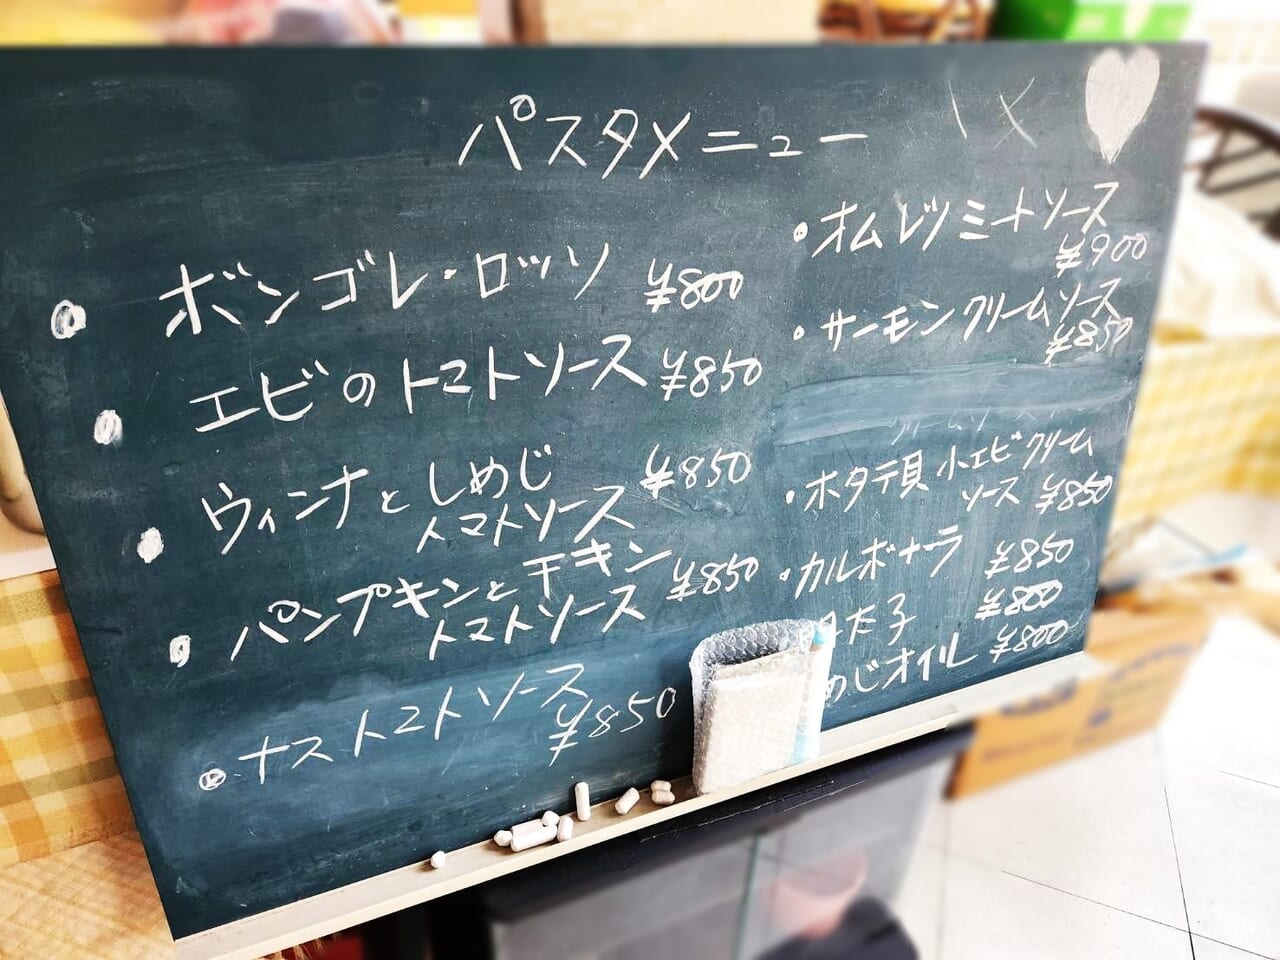 パスタメニュー
・ボンゴレ・ロッソ ¥800
・エビのトマトソース ¥850
・ウィンナとしめじ ¥850
トマトソース
・パンプキンとチキン ¥850
トマトソース
・ナストマトソース
¥850
・オムレツミートソース
¥900
・サーモンクリームソース
¥850
・ホタテ貝小エビクリーム
ソース ¥850
・カルボナーラ ¥850
太子 ¥800
めじオイル ¥800